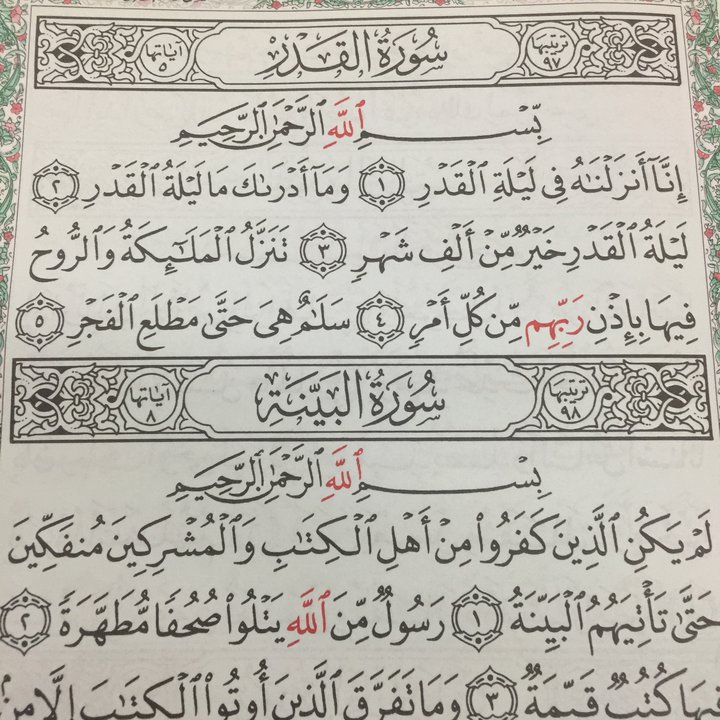 ترتيبها ٩٧ سُورَةُ القَدۡرِ آياتها ٥
بِسۡمِ ٱللَّهِ ٱلرَّحۡمَٰنِ ٱلرَّحِيمِ
إِنَّآ أَنزَلۡنَٰهُ فِي لَيۡلَةِ ٱلۡقَدۡرِ ١ وَمَآ أَدۡرَىٰكَ مَا لَيۡلَةُ ٱلۡقَدۡرِ ٢
لَيۡلَةُ ٱلۡقَدۡرِ خَيۡرٞ مِّنۡ أَلۡفِ شَهۡرٖ ٣ تَنَزَّلُ ٱلۡمَلَٰٓئِكَةُ وَٱلرُّوحُ
فِيهَا بِإِذۡنِ رَبِّهِم مِّن كُلِّ أَمۡرٖ ٤ سَلَٰمٌ هِيَ حَتَّىٰ مَطۡلَعِ ٱلۡفَجۡرِ ٥
ترتيبها ٩٨ سُورَةُ البَيِّنَةِ آياتها ٨
بِسۡمِ ٱللَّهِ ٱلرَّحۡمَٰنِ ٱلرَّحِيمِ
لَمۡ يَكُنِ ٱلَّذِينَ كَفَرُواْ مِنۡ أَهۡلِ ٱلۡكِتَٰبِ وَٱلۡمُشۡرِكِينَ مُنفَكِّينَ
حَتَّىٰ تَأۡتِيَهُمُ ٱلۡبَيِّنَةُ ١ رَسُولٞ مِّنَ ٱللَّهِ يَتۡلُواْ صُحُفٗا مُّطَهَّرَةٗ ٢
فِيهَا كُتُبٞ قَيِّمَةٞ ٣ وَمَا تَفَرَّقَ ٱلَّذِينَ أُوتُواْ ٱلۡكِتَٰبَ إِلَّا مِنۢ